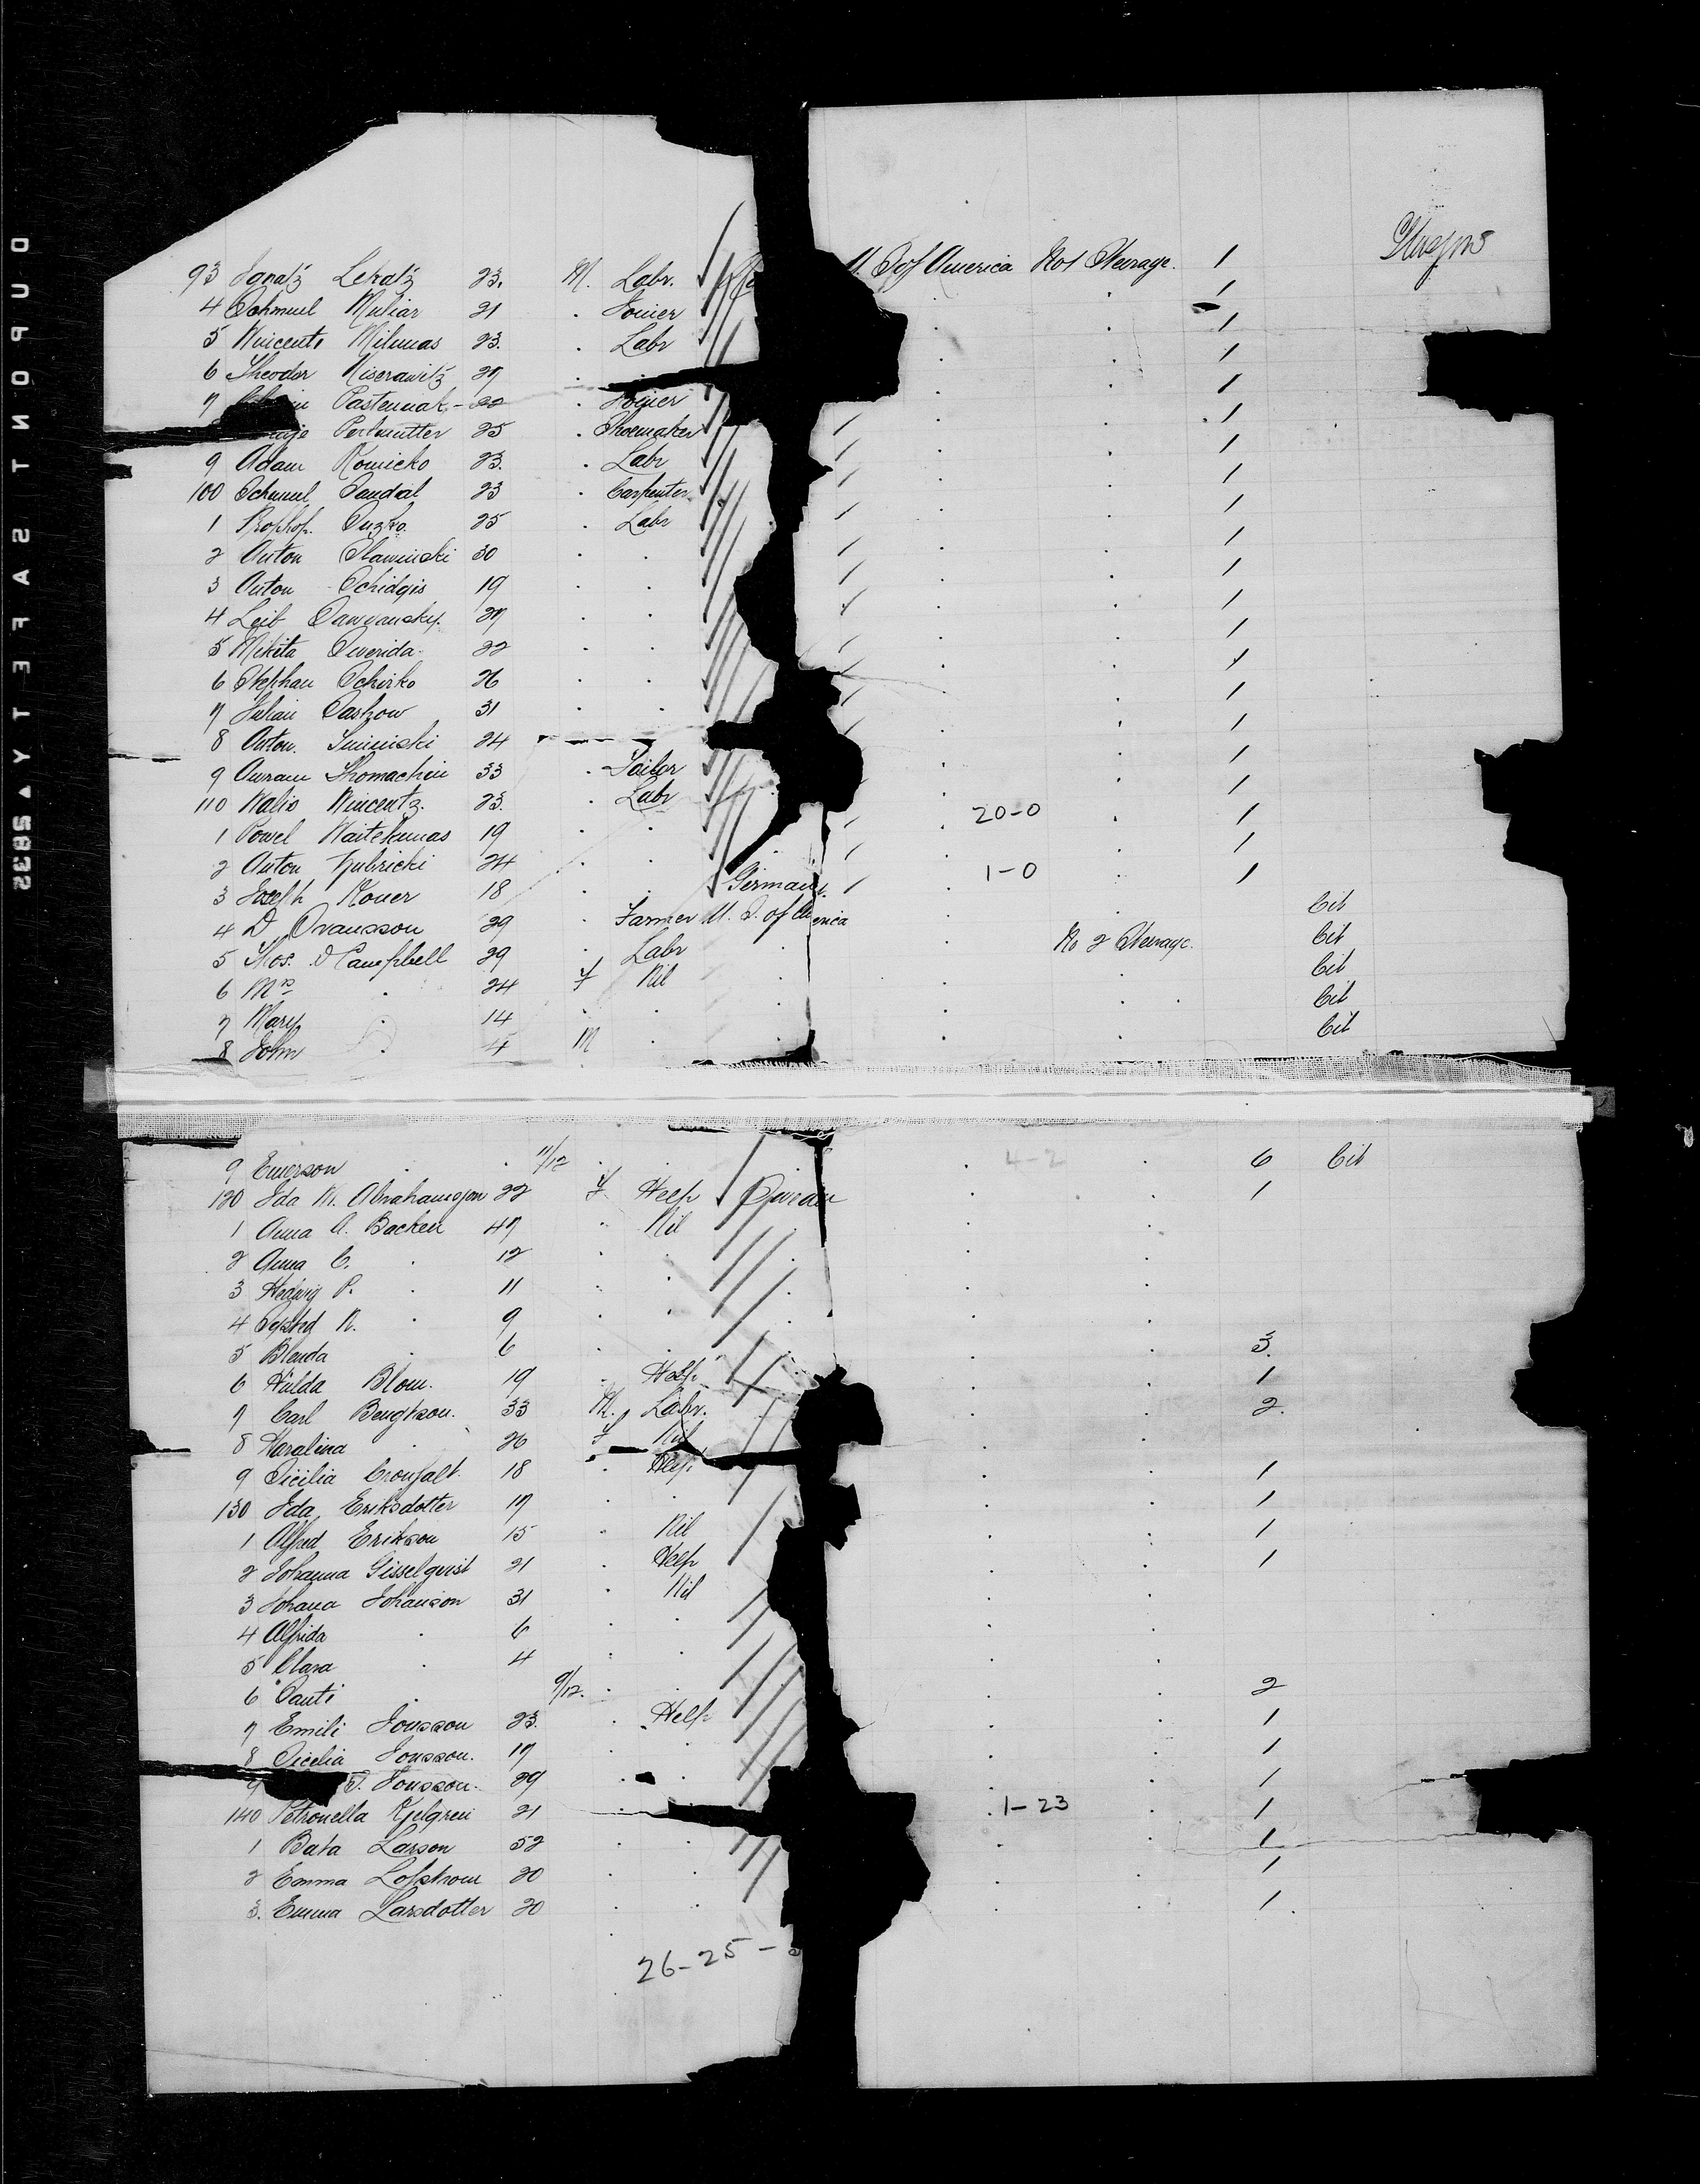 93 Ignatz Lekatz 23. M. Labr. U. S. of America No 1 Steerage. 1 Glasgow
4 Schmuel Muliar 21 . Joiner . . 1
5 Wincenti Milunas 23. . Labr . . 1
6 Theodor Miscrawitz 27 . . . 1
7 Pasternak - 22 . Joiner . . 1
Perlmutter 25 . Shoemaker . . 1
9 Adam Romicko 23. . Labr . . 1
100 Schmul Sandal 23 . Carpenter . . 1
1 Prophop. Suzko. 25 . Labr . . 1
2 Anton Slawinski 30 . . . . 1
3 Anton Schidgis 19 . . . . 1
4 Leib 27 . . . . 1
5 Mikita Swerida 22 . . . . 1
6 Stephan Schirko 26 . . . . 1
7 Julian Saskow 31 . . . 1
8 Anton. 24 . 1
9 Thomachin 33 . Tailor . . 1
110 Walio Wincentz. 23. . Labr . . 1
1 Powel Waitekunas 19 . . . 20-0 . 1
2 Anton Zubricki 24 . . . . 1
3 Joseph Kover 18 . . Germany . 1-0 . 1
4 D Svansson 29 . Farmer U. S. of America . . Cit
5 Thos. D Campbell 29 . Labr . No 2 Steerage. Cit
6 Mrs . 24 F Nil . . . Cit
7 Mary . 14 . . . . . . Cit
8 John . 4 M . . . . Cit
9 Emerson . . 11/12 . . . . 4-2 . 6 Cit
120 Ida M. Abrahamson 22 F Help Sweden . . 1
1 Anna A. Backen 47 . Nil . . .
2 Anna C. . 12 . . . . .
3 Hedwig P. . 11 . . . . .
4 N. . 9 . . . . .
5 Blenda . 6 . . . . . 3.
6 Hulda Blom. 19 . Help . . 1
7 Carl Bengtson. 33 M. Labr. . . 2.
8 . 26 F Nil . .
9 Sicilia Cronfalt. 18 . Help. . . 1
130 Ida Eriksdotter 17 . . . . 1
1 Alfred Erikson 15 . Nil . . 1
2 Johanna Gisselquist 21 . Help . . 1
3 Johana Johanson 31 . Nil . .
4 Alfrida . 6 . . . .
5 Clara . 4 . . . .
6 Santi . 9/12. . . . . 2
7 Emili Jonsson 23. . Help . . 1
8 Sicelia Jonsson. 17 . . . . 1
9 Jonsson. 29 . . . . 1
140 Petronella Kjelgren 21 . . 1-23 . 1
1 Bata Larson 52 . . . . 1
2 Emma Lofstrom 20 . . . . 1
3. Emma Larsdotter 20 . . . . 1.
26-25-
DUPONT SAFETY ▲ 5832